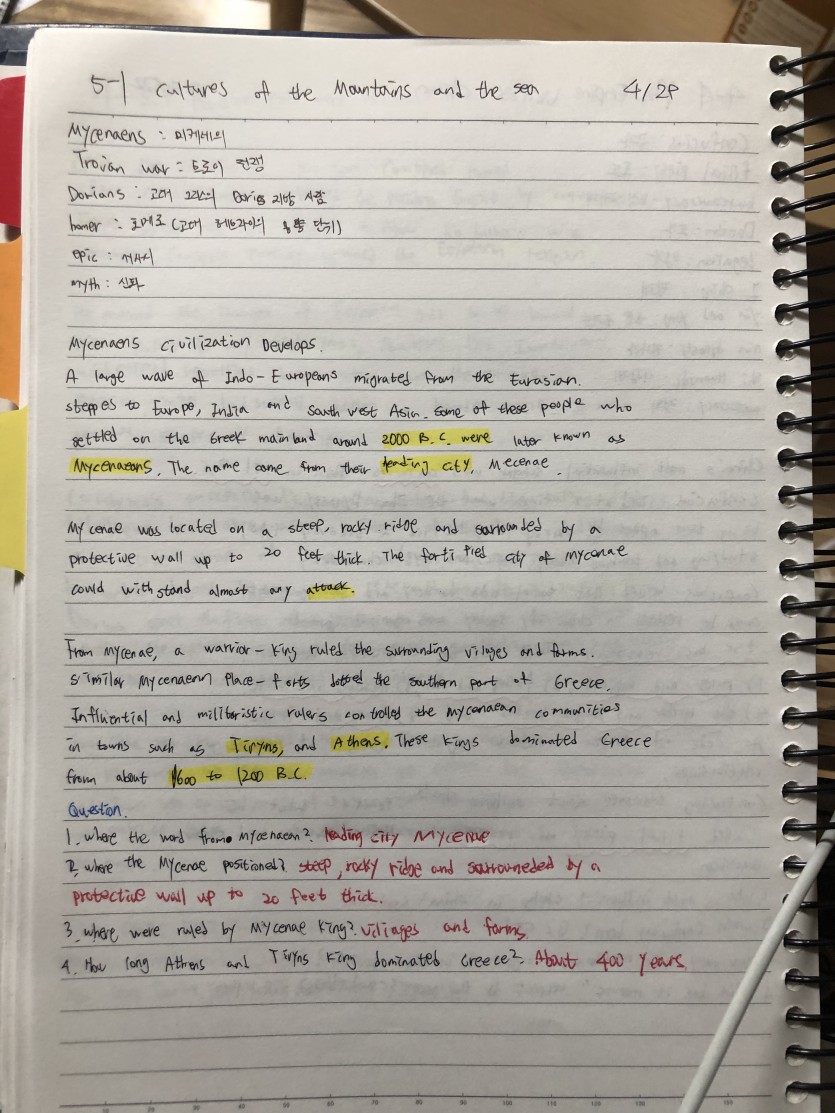 5-1 Cultures of the Mountains and the sea 4/28
Mycenaens : 미케네의
Trojan war : 트로이 전쟁
Dorians : 고대 그리스의 Doris 지방 사람
homer : 호메로 (고대 헤브라이의 용량 단위)
epic : 서사시
myth : 신화
Mycenaens Civilization Develops.
A large wave of Indo-Europeans migrated from the Eurasian.
steppes to Europe, India and South west Asia. Some of these people who
settled on the Greek mainland around 2000 B.C. were later known as
Mycenaeans. The name come from their leading city, Mecenae.
Mycenae was located on a steep, rocky ridge and surrounded by a
protective wall up to 20 feet thick. The forti fied city of mycenae
could withstand almost any attack.
From Mycenae, a warrior-King ruled the surrounding villages and farms.
Similar Mycenaenn Place-forts dotted the southern part of Greece.
Influential and militaristic rulers controlled the Mycenaean communities
in towns such as Tiryns, and Athens. These Kings dominated Greece
from about 1600 to 1200 B.C.
Question.
1. where the word from mycenaean? leading city Mycenae
2. where the Mycenae positioned? steep, rocky ridge and surrouneded by a
protective wall up to 20 feet thick.
3. where were ruled by Mycenae King? villages and farms
4. How long Athens and Tiryns King dominated Greece? About 400 years.